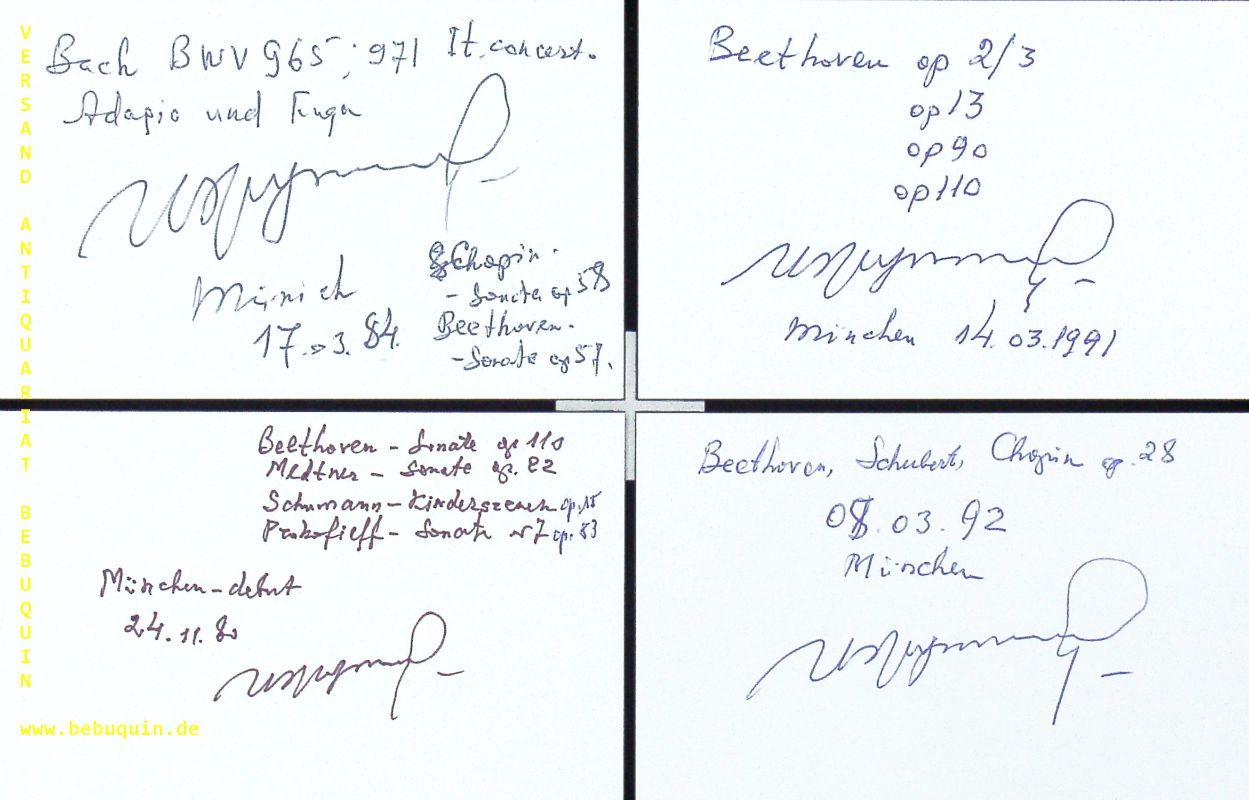 Bach BWV 965; 971 It. concert.
Adagio und Fuga
Münich
17.03.84.
Chopin.
- Sonate op 58
Beethoven.
- Sonate op 57.
Beethoven op 2/3
op 13
op 90
op 110
München 14.03.1991
Beethoven - Sonate op 110
Medtner - Sonate op. 22
Schumann - Kinderszenen op. 15
Prokofieff - Sonate N7 op. 83
München - debut
24.11.80
Beethoven, Schubert, Chopin op. 28
08.03.92
München
VERSAND ANTIQUARIAT BEBUQUIN
www.bebuquin.de